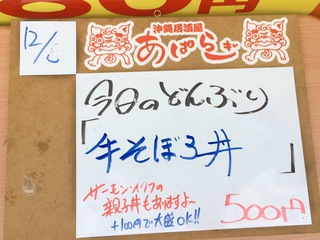 沖縄居酒屋
あぱらぎ
12/6
今日のどんぶり
「牛そぼろ丼
サーモン・イクラの
親子丼もありますよ~
+100円で大盛OK!!
500円